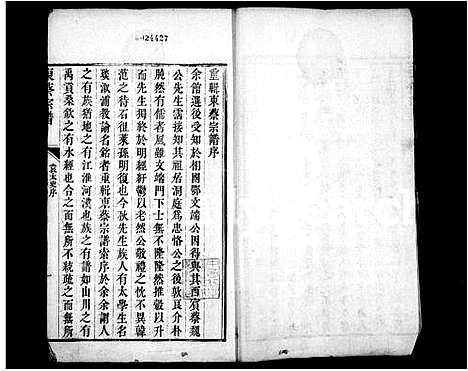 024427
重輯東蔡宗譜序
余館選後受知於相國鄂文端公因得與其西賓蔡魏
公先生雪接知其祖居洞庭為忠恪公之後敦良介朴
屹然有儒者風雖文端門下士無不隆隆然推轂以升
而先生獨決於明經紆鬱以老然公敬禮之忱不異韓
范之待石徂萊孫明復也今秋先生族人有太學生名
淡漵浦教諭名銘者重輯東蔡宗譜索序於余余謂人
之有族猶地之有江淮河漢也族之有譜如山川之有
禹貢桑欽之有水經也合之而無所不統疏之而無所
東蔡宗譜
袁太史序